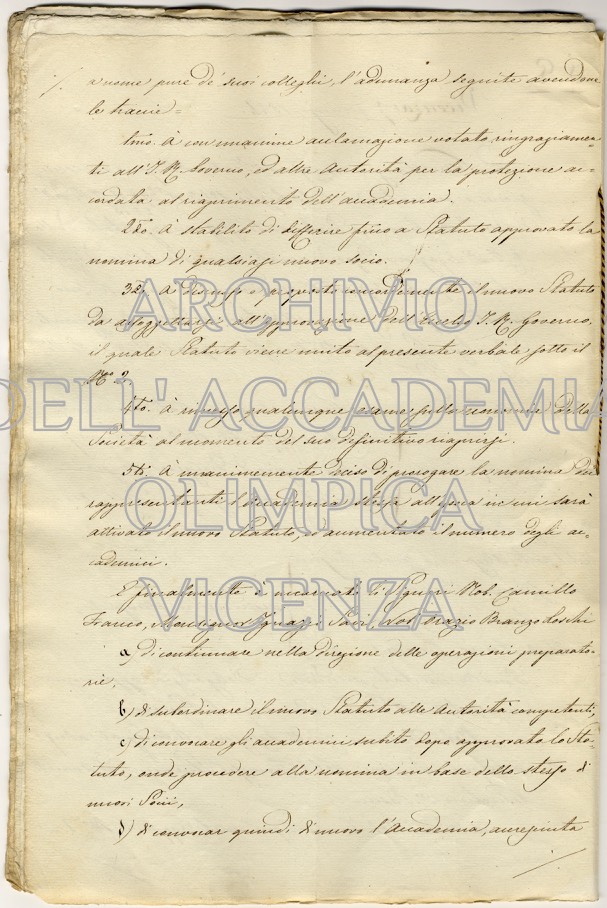 a nome pure de' suoi colleghi, l'adunanza seguite avendone
le traccie=
Imo. A con unanime acclamazione votato ringraziamen-
ti all'I. R. Governo, ed altre Autorità per la protezione ac-
cordata al riaprimento dell'accademia.
2do. A stabilito di differire fino a Statuto approvato la
nomina di qualsiasi nuovo socio.
3zo. A discusso e proposto il nuovo Statuto
da assoggettarsi all'approvazione dell'Eccelso I. R. Governo,
il quale Statuto viene unito al presente verbale sotto il
No. 2.
4to. à rimesso qualunque esame sulla economia della
Società al momento del suo definitivo riaprirsi.
5to. À unanimemente deciso di prorogare la nomina dei
rappresentanti l'Accademia stessa all'epoca in cui sarà
attivato il nuovo Statuto, ed aumentato il numero degli ac-
cademici.
E finalmente à incaricato li Signori Nob. Camillo
Franco, Monsignor Ignazio Savi, Nob. Orazio Branzo Loschi
a) di continuare nella direzione delle operazioni preparato-
rie,
b) di subordinare il nuovo Statuto alle Autorità competenti,
c) di convocare gli accademici subito dopo approvato lo Sta-
tuto, onde procedere alla nomina in base dello stesso di
nuovi Socii,
d) di convocar quindi di nuovo l'Accademia, accresciuta
ARCHIVIO
DELL'ACCADEMIA
OLIMPICA
VICENZA